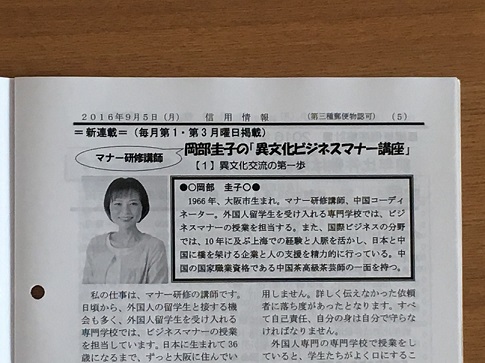 2016年9月5日(月) 信用情報 (第三種郵便物認可) (5)
＝新連載＝(毎月第1・第3月曜日掲載)
マナー研修講師
岡部圭子の「異文化ビジネスマナー講座」
【1】異文化交流の第一歩
●○岡部 圭子○●
1966年、大阪市生まれ。マナー研修講師、中国コーディ
ネーター。外国人留学生を受け入れる専門学校では、ビジ
ネスマナーの授業を担当する。また、国際ビジネスの分野
では、10年に及ぶ上海での経験と人脈を活かし、日本と中
国に橋を架ける企業と人の支援を精力的に行っている。中
国の国家職業資格である中国茶高級茶芸師の一面を持つ。
私の仕事は、マナー研修の講師です。
日頃から、外国人の留学生と接する機
会も多く、外国人留学生を受け入れる
専門学校では、ビジネスマナーの授業
を担当しています。日本に生まれて36
歳になるまで、ずっと大阪に住んでい
用しません。詳しく伝えなかった依頼
者に落ち度があったとなります。すべ
て自己責任、自分の身は自分で守らな
ければなりません。
外国人専門の専門学校で授業をし
ていると、学生たちがよく口にするこ